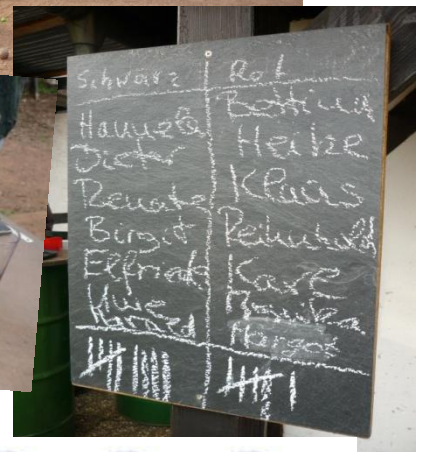 Schwarz Rot
Hannela Bettina
Dieter Heike
Renate Klaus
Birgit Reinhold
Elfriede Karl
Uwe Monika
Harald Margot